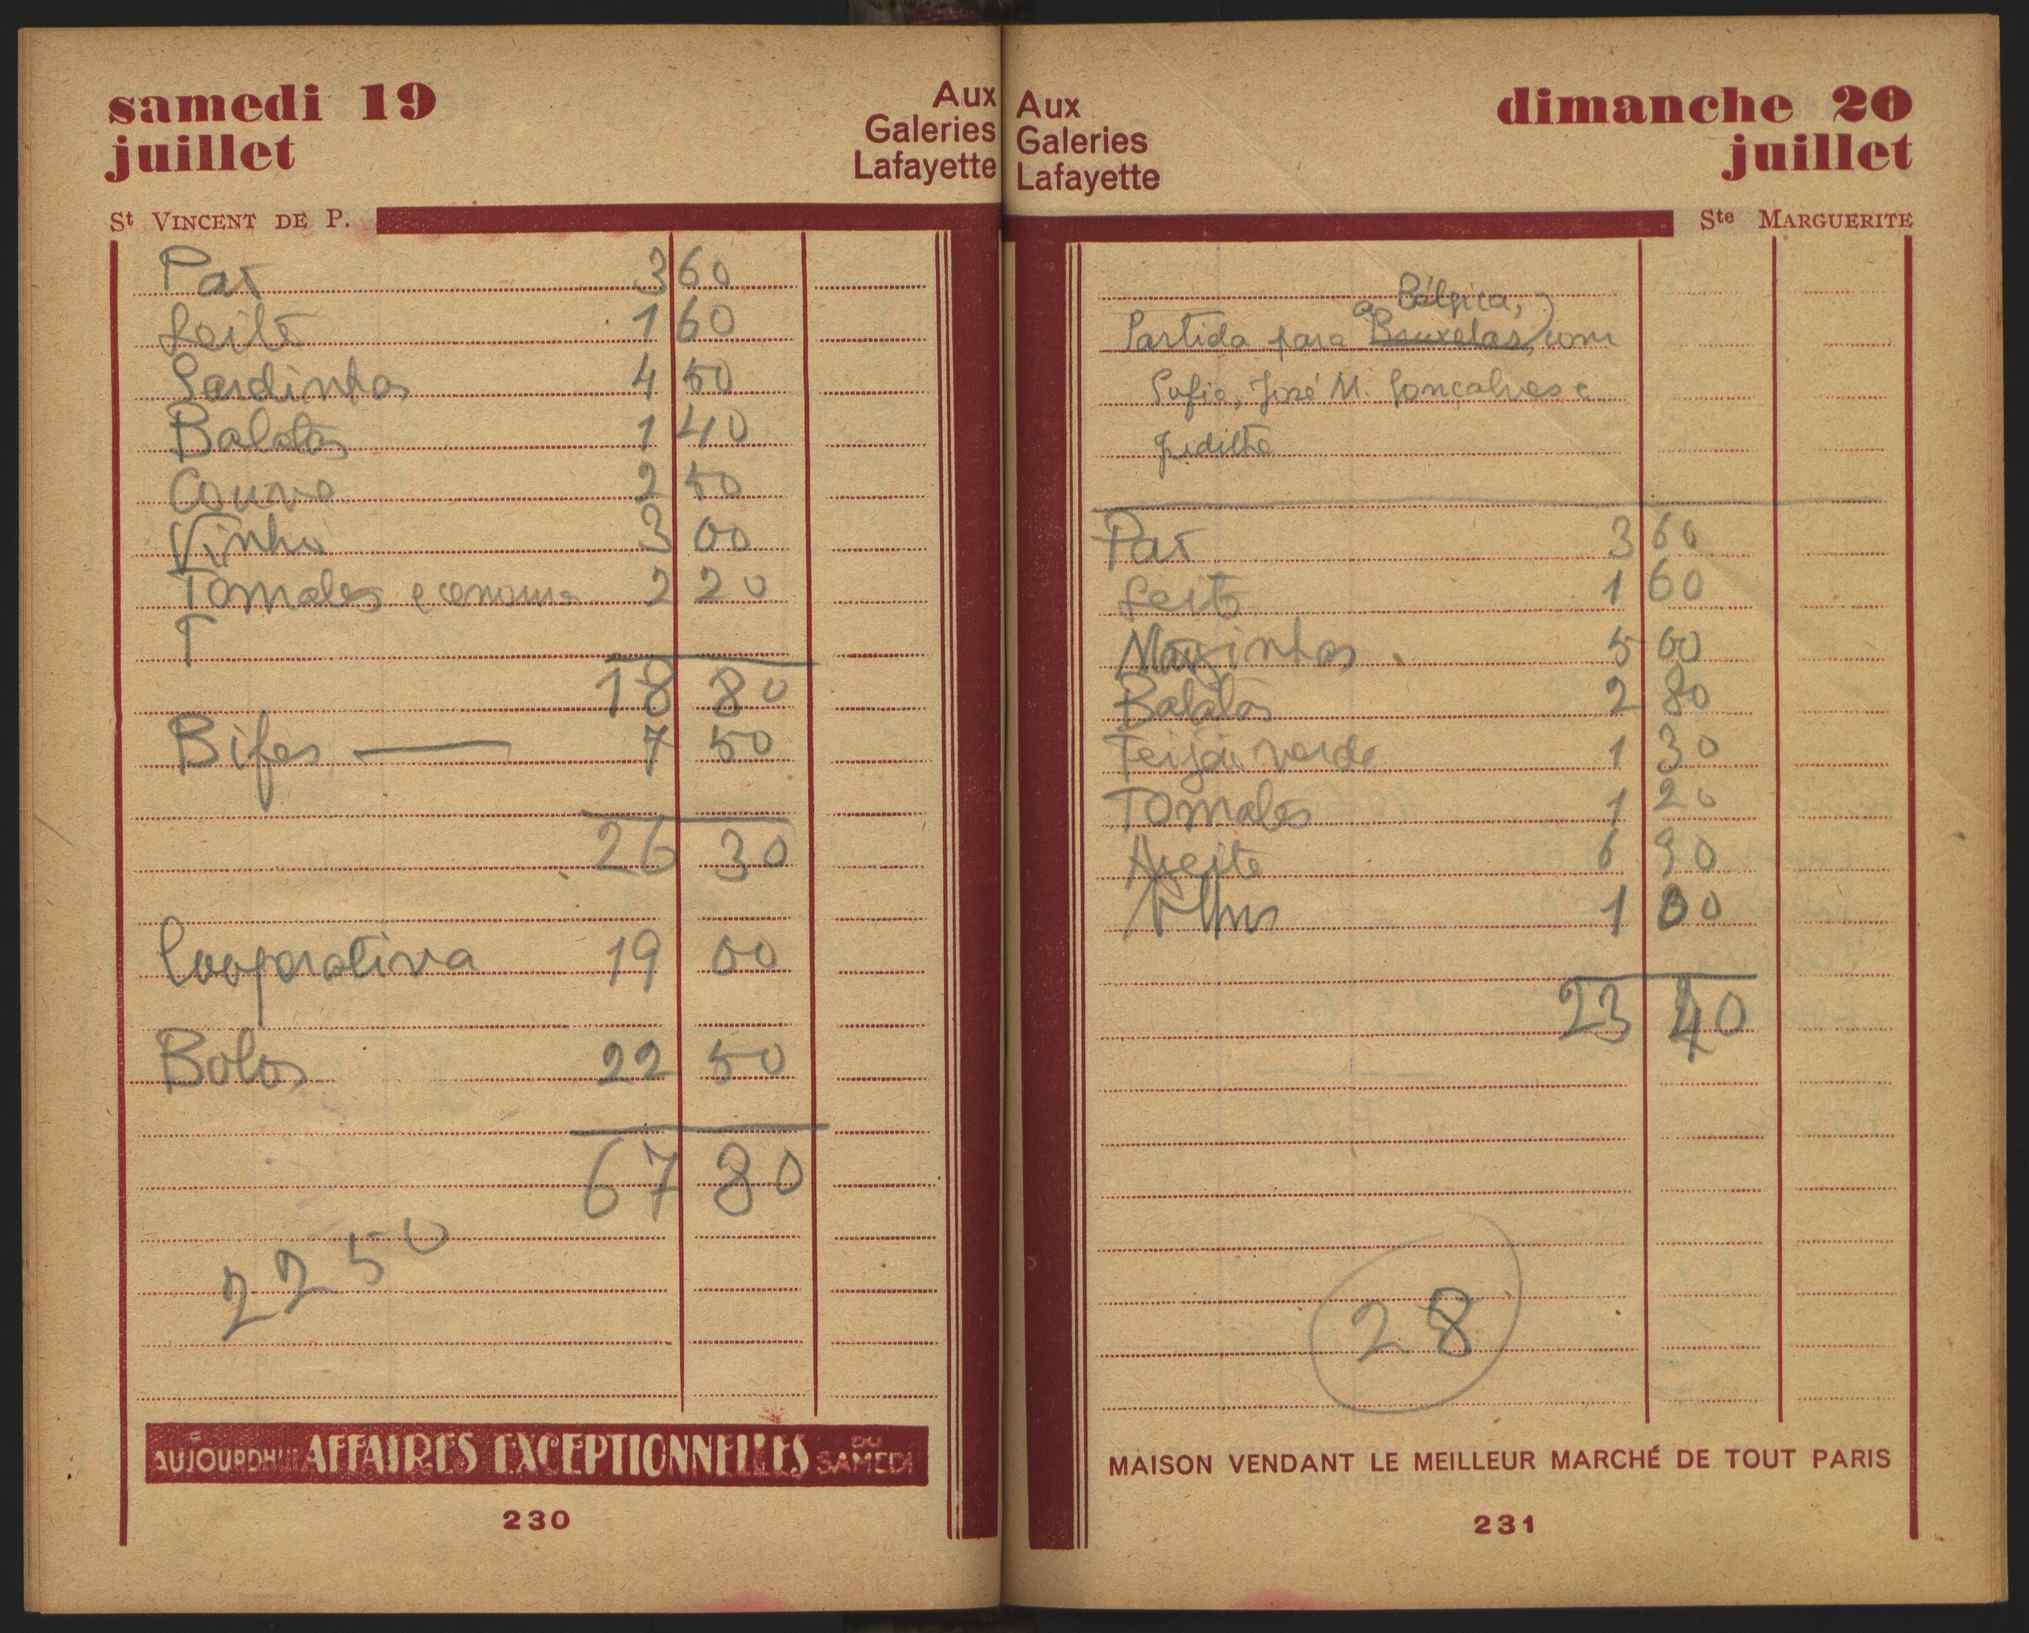 samedi 19
juillet
Aux
Galeries
Lafayette
St VINCENT DE P.
Pax 3 60
Leite 1 60
Sardinhas 4 50
Batatas 1 40
Couve 2 50
Vinho 3 00
Tomates e cenouras 2 20
T
18 80
Bifes 7 50
26 30
Cooperativa 19 00
Bolos 22 50
67 80
22 50
AUJOURDHUI AFFAIRES EXCEPTIONNELLES DU SAMEDI
230
Aux
Galeries
Lafayette
dimanche 20
juillet
Ste MARGUERITE
a Bélgica,
Partida para Bruxelas, com
Sofia, José M. Gonçalves e
Pax 3 60
Leite 1 60
5 00
Batatas 2 80
Feijão verde 1 30
Tomates 1 20
Azeite 6 90
Alhos 1 00
23 40
28
MAISON VENDANT LE MEILLEUR MARCHÉ DE TOUT PARIS
231